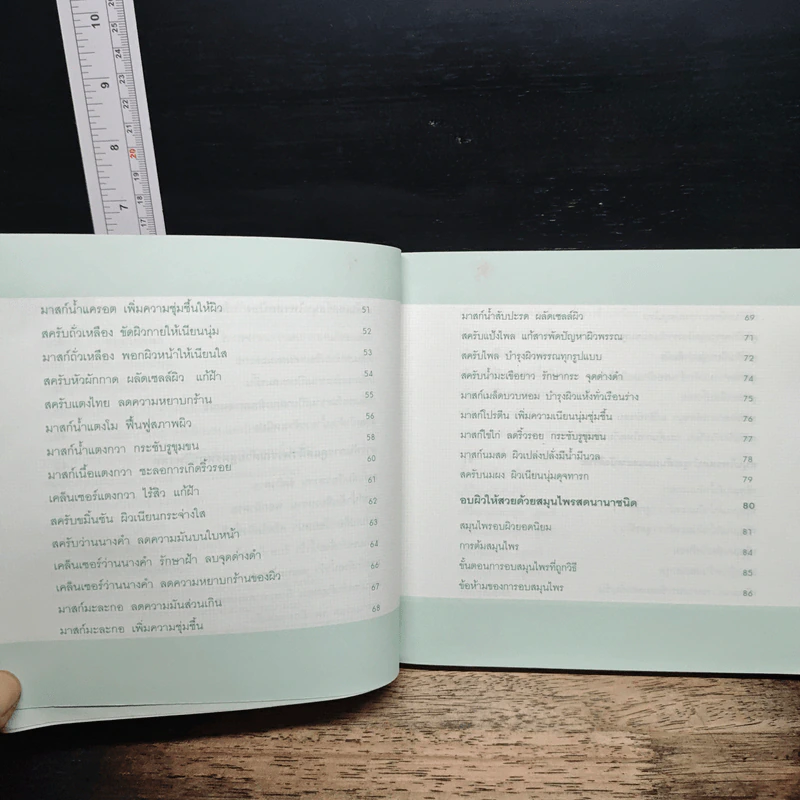 มาส์กน้ำแครอต เพิ่มความชุ่มชื้นให้ผิว 51
สครับถั่วเหลือง ขัดผิวกายให้เนียนนุ่ม 52
มาส์กถั่วเหลือง พอกผิวหน้าให้เนียนใส 53
สครับหัวผักกาด ผลัดเซลล์ผิว แก้ฝ้า 54
สครับแตงไทย ลดความหยาบกร้าน 55
มาส์กน้ำแตงโม ฟื้นฟูสภาพผิว 56
มาส์กน้ำแตงกวา กระชับรูขุมขน 58
มาส์กเนื้อแตงกวา ชะลอการเกิดริ้วรอย 60
เคลินเซอร์แตงกวา ไร้สิว แก้ฝ้า 61
สครับขมิ้นชัน ผิวเนียนกระจ่างใส 62
สครับว่านนางคำ ลดความมันบนใบหน้า 63
เคลินเซอร์ว่านนางคำ รักษาฝ้า ลบจุดด่างดำ 64
เคลินเซอร์ว่านนางคำ ลดความหยาบกร้านของผิว 66
มาส์กมะละกอ ลดความมันส่วนเกิน 67
มาส์กมะละกอ เพิ่มความชุ่มชื้น 68
มาส์กน้ำสับปะรด ผลัดเซลล์ผิว 69
สครับแป้งไพล แก้สารพัดปัญหาผิวพรรณ 71
สครับไพล บำรุงผิวพรรณทุกรูปแบบ 72
สครับน้ำมะเขือยาว รักษากระ จุดด่างดำ 74
มาส์กเมล็ดบวบหอม บำรุงผิวแห้งทั่วเรือนร่าง 75
มาส์กโปรตีน เพิ่มความเนียนนุ่มชุ่มชื้น 76
มาส์กไข่ไก่ ลดริ้วรอย กระชับรูขุมขน 77
มาส์กนมสด ผิวเปล่งปลั่งมีน้ำมีนวล 78
สครับนมผง ผิวเนียนนุ่มดุจทารก 79
อบผิวให้สวยด้วยสมุนไพรสดนานาชนิด 80
สมุนไพรอบผิวยอดนิยม 81
การต้มสมุนไพร 84
ขั้นตอนการอบสมุนไพรที่ถูกวิธี 85
ข้อห้ามของการอบสมุนไพร 86
10
9
8
7
25
24
23
22
21
20
19
18
17